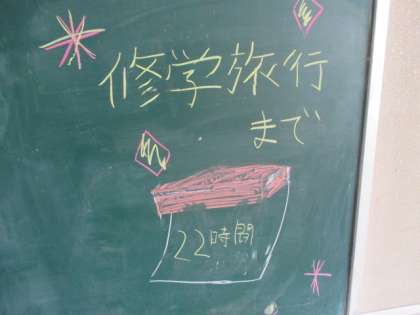 修学旅行
まで
22時間